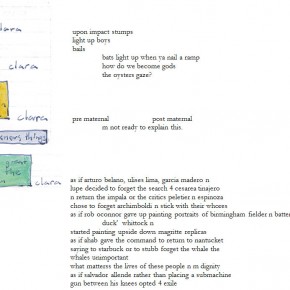 clara
clara
clara
oeners things
the
clara
upon impact stumps
light up boys
bails
bats light up when ya nail a ramp
how do we become gods
the oysters gaze?
pre maternal post maternal
m not ready to explain this.
as if arturo belano, ulises lima, garcia madero n
lupe decided to forget the search 4 cesarea tinajero
n return the impala or the critics pelletier n espinoza
chose to forget archimboldi n stick with their whores
as if rob oconnor gave up painting portraits of birmingham fielder n batter
duck' whitlock n
started painting upside down magritte replicas
as if ahab gave the command to return to nantucket
saying to starbuck or to stubb forget the whale the
whales unimportant
what matterss the lives of these people n m dignity
as if salvador allende rather than placing a submachine
gun between his knees opted 4 exile